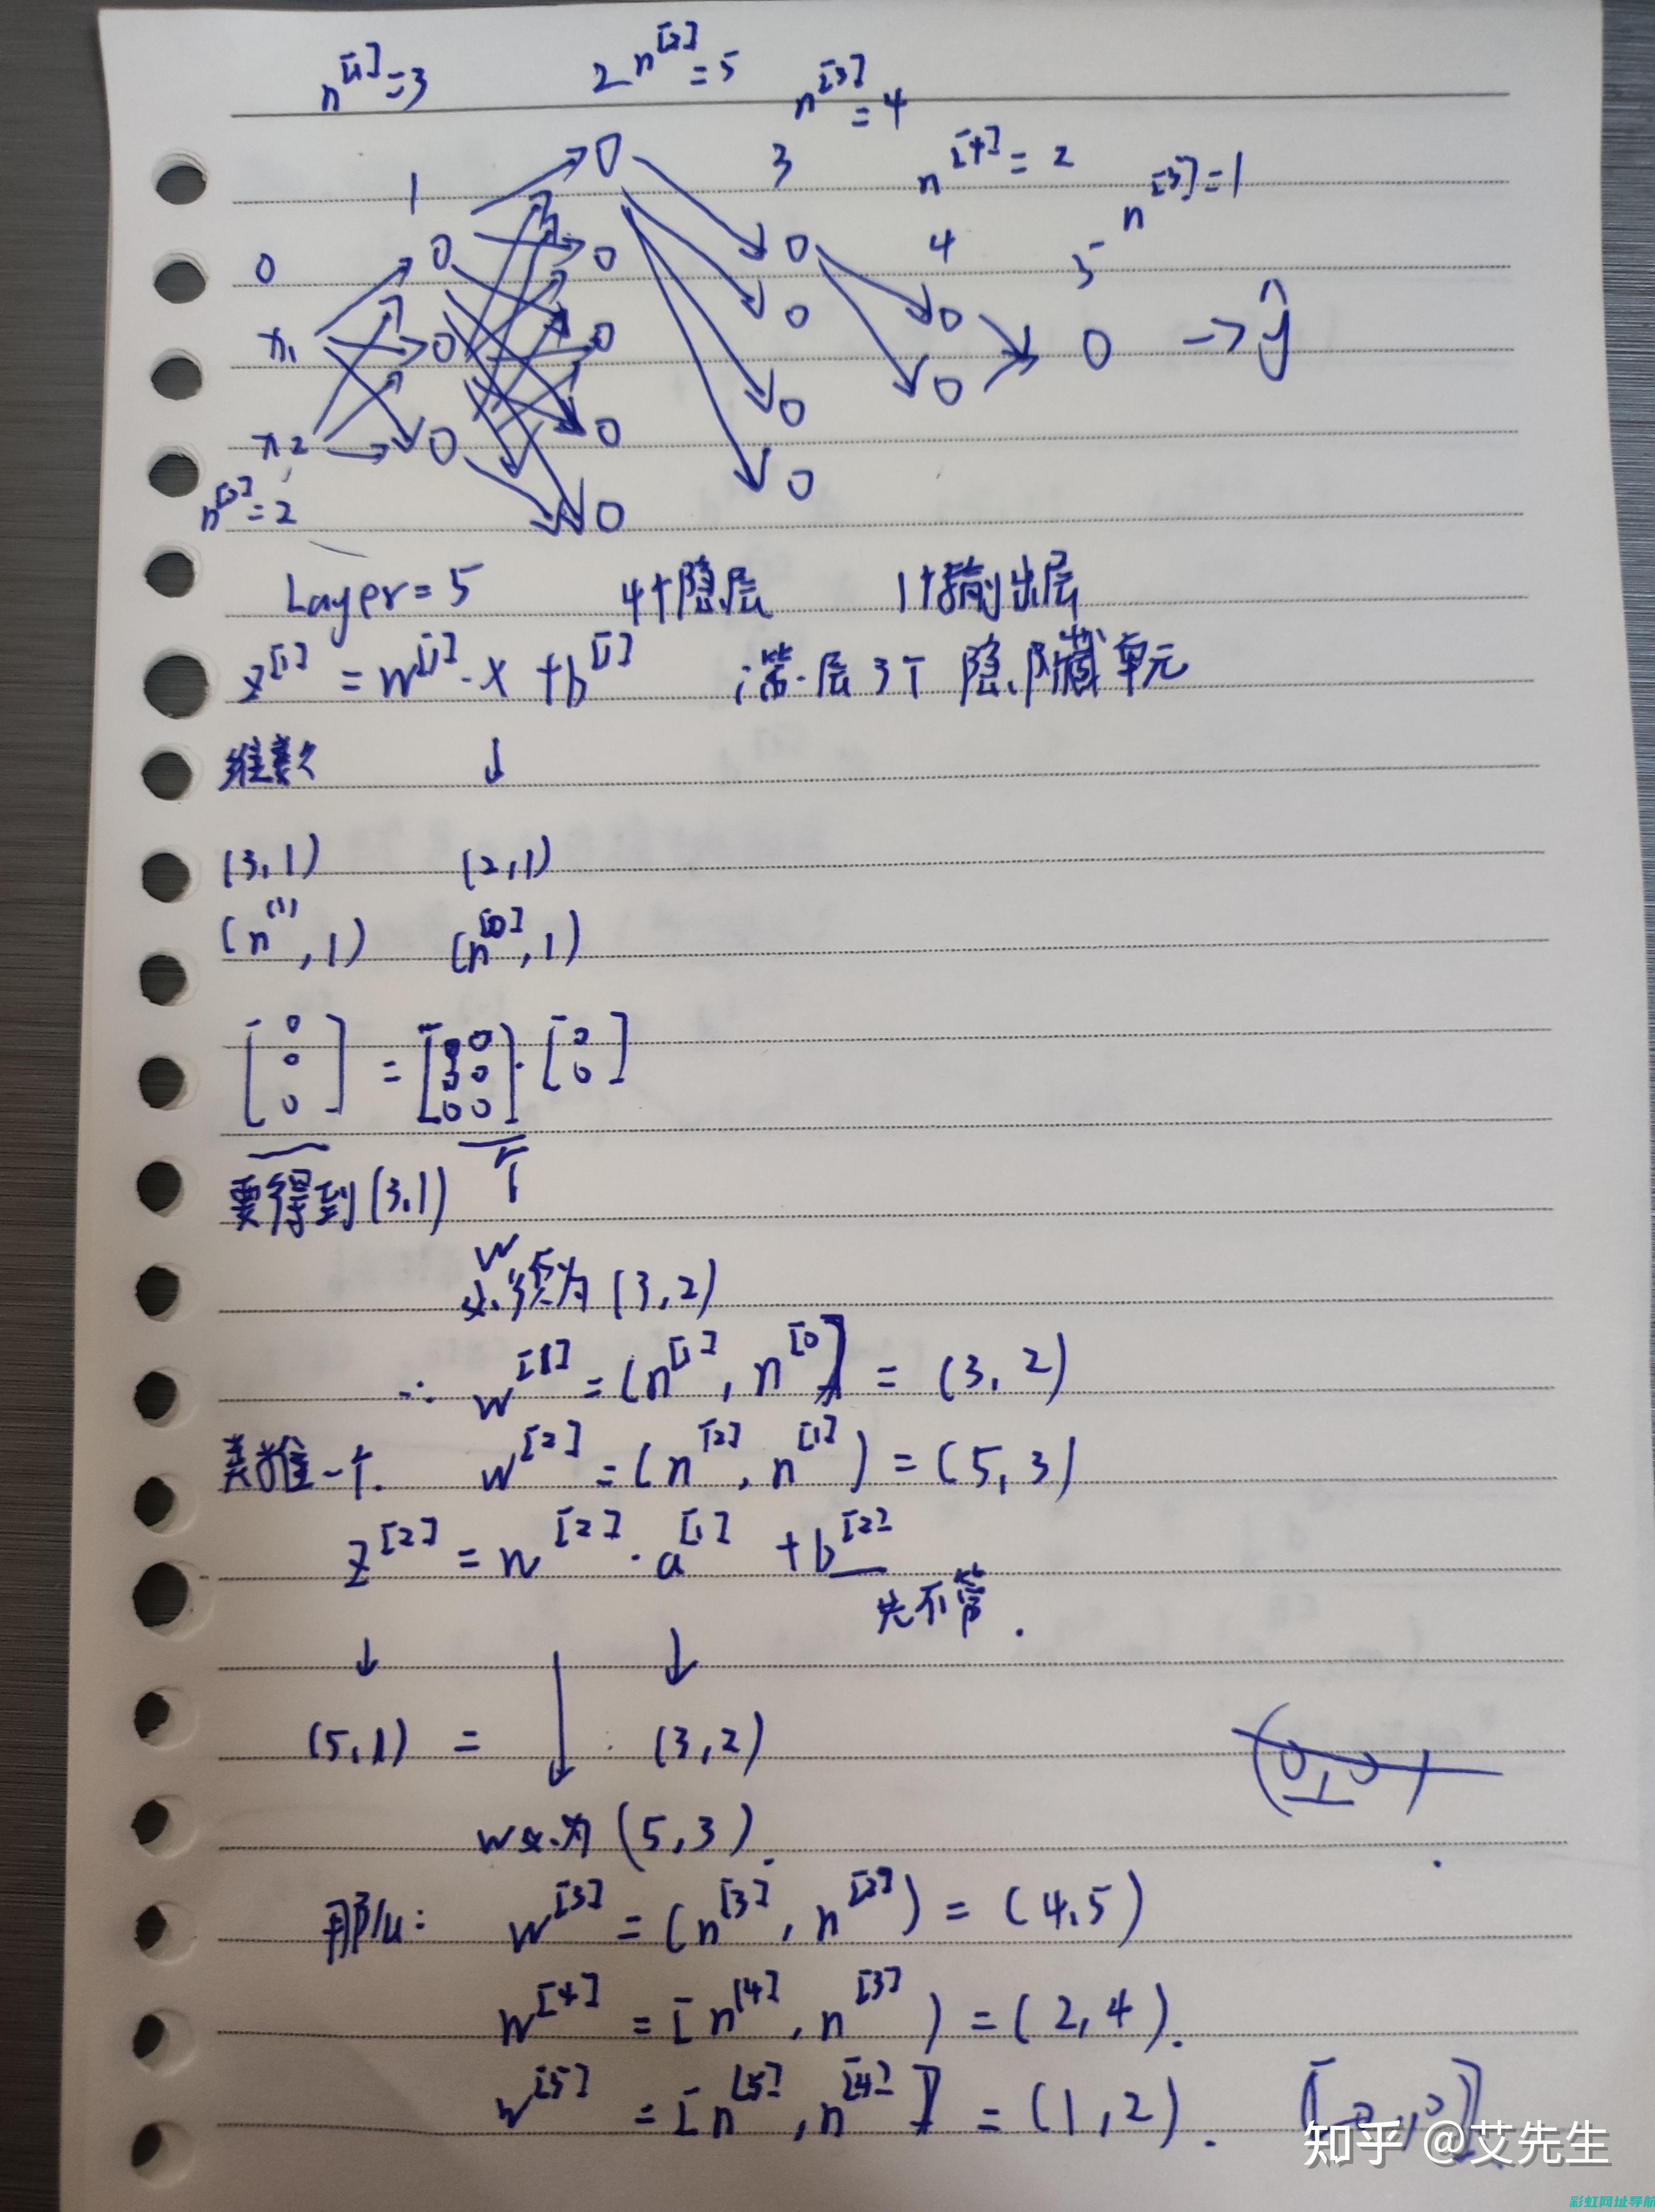 n^[1]=3 2 n^[2]=5 n^[3]=4
1 3 n^[4]=2 n^[5]=1
0 4 5
x1 → ŷ
x2
n^[0]=2
Layer=5 4个隐层 1个输出层
z^[1] = w^[1]·x + b^[1] 第一层3个 隐藏单元
维数 ↓
(3,1) (2,1)
(n^[1],1) (n^[0],1)
[0 0 0] = [0 0 0 0 0 0]·[0 0]
要得到(3,1) ↑
w
必须为(3,2)
∴ w^[1] = (n^[1], n^[0]) = (3,2)
类推一个. w^[2] = (n^[2], n^[1]) = (5,3)
z^[2] = w^[2]·a^[1] + b^[2]
先不管.
↓ ↓ ↓
(5,1) = · (3,2)
w必为(5,3).
那么: w^[3] = (n^[3], n^[2]) = (4,5)
w^[4] = [n^[4], n^[3]) = (2,4).
w^[5] = [n^[5], n^[4]] = (1,2).
知乎 @艾先生
彩虹网址导航